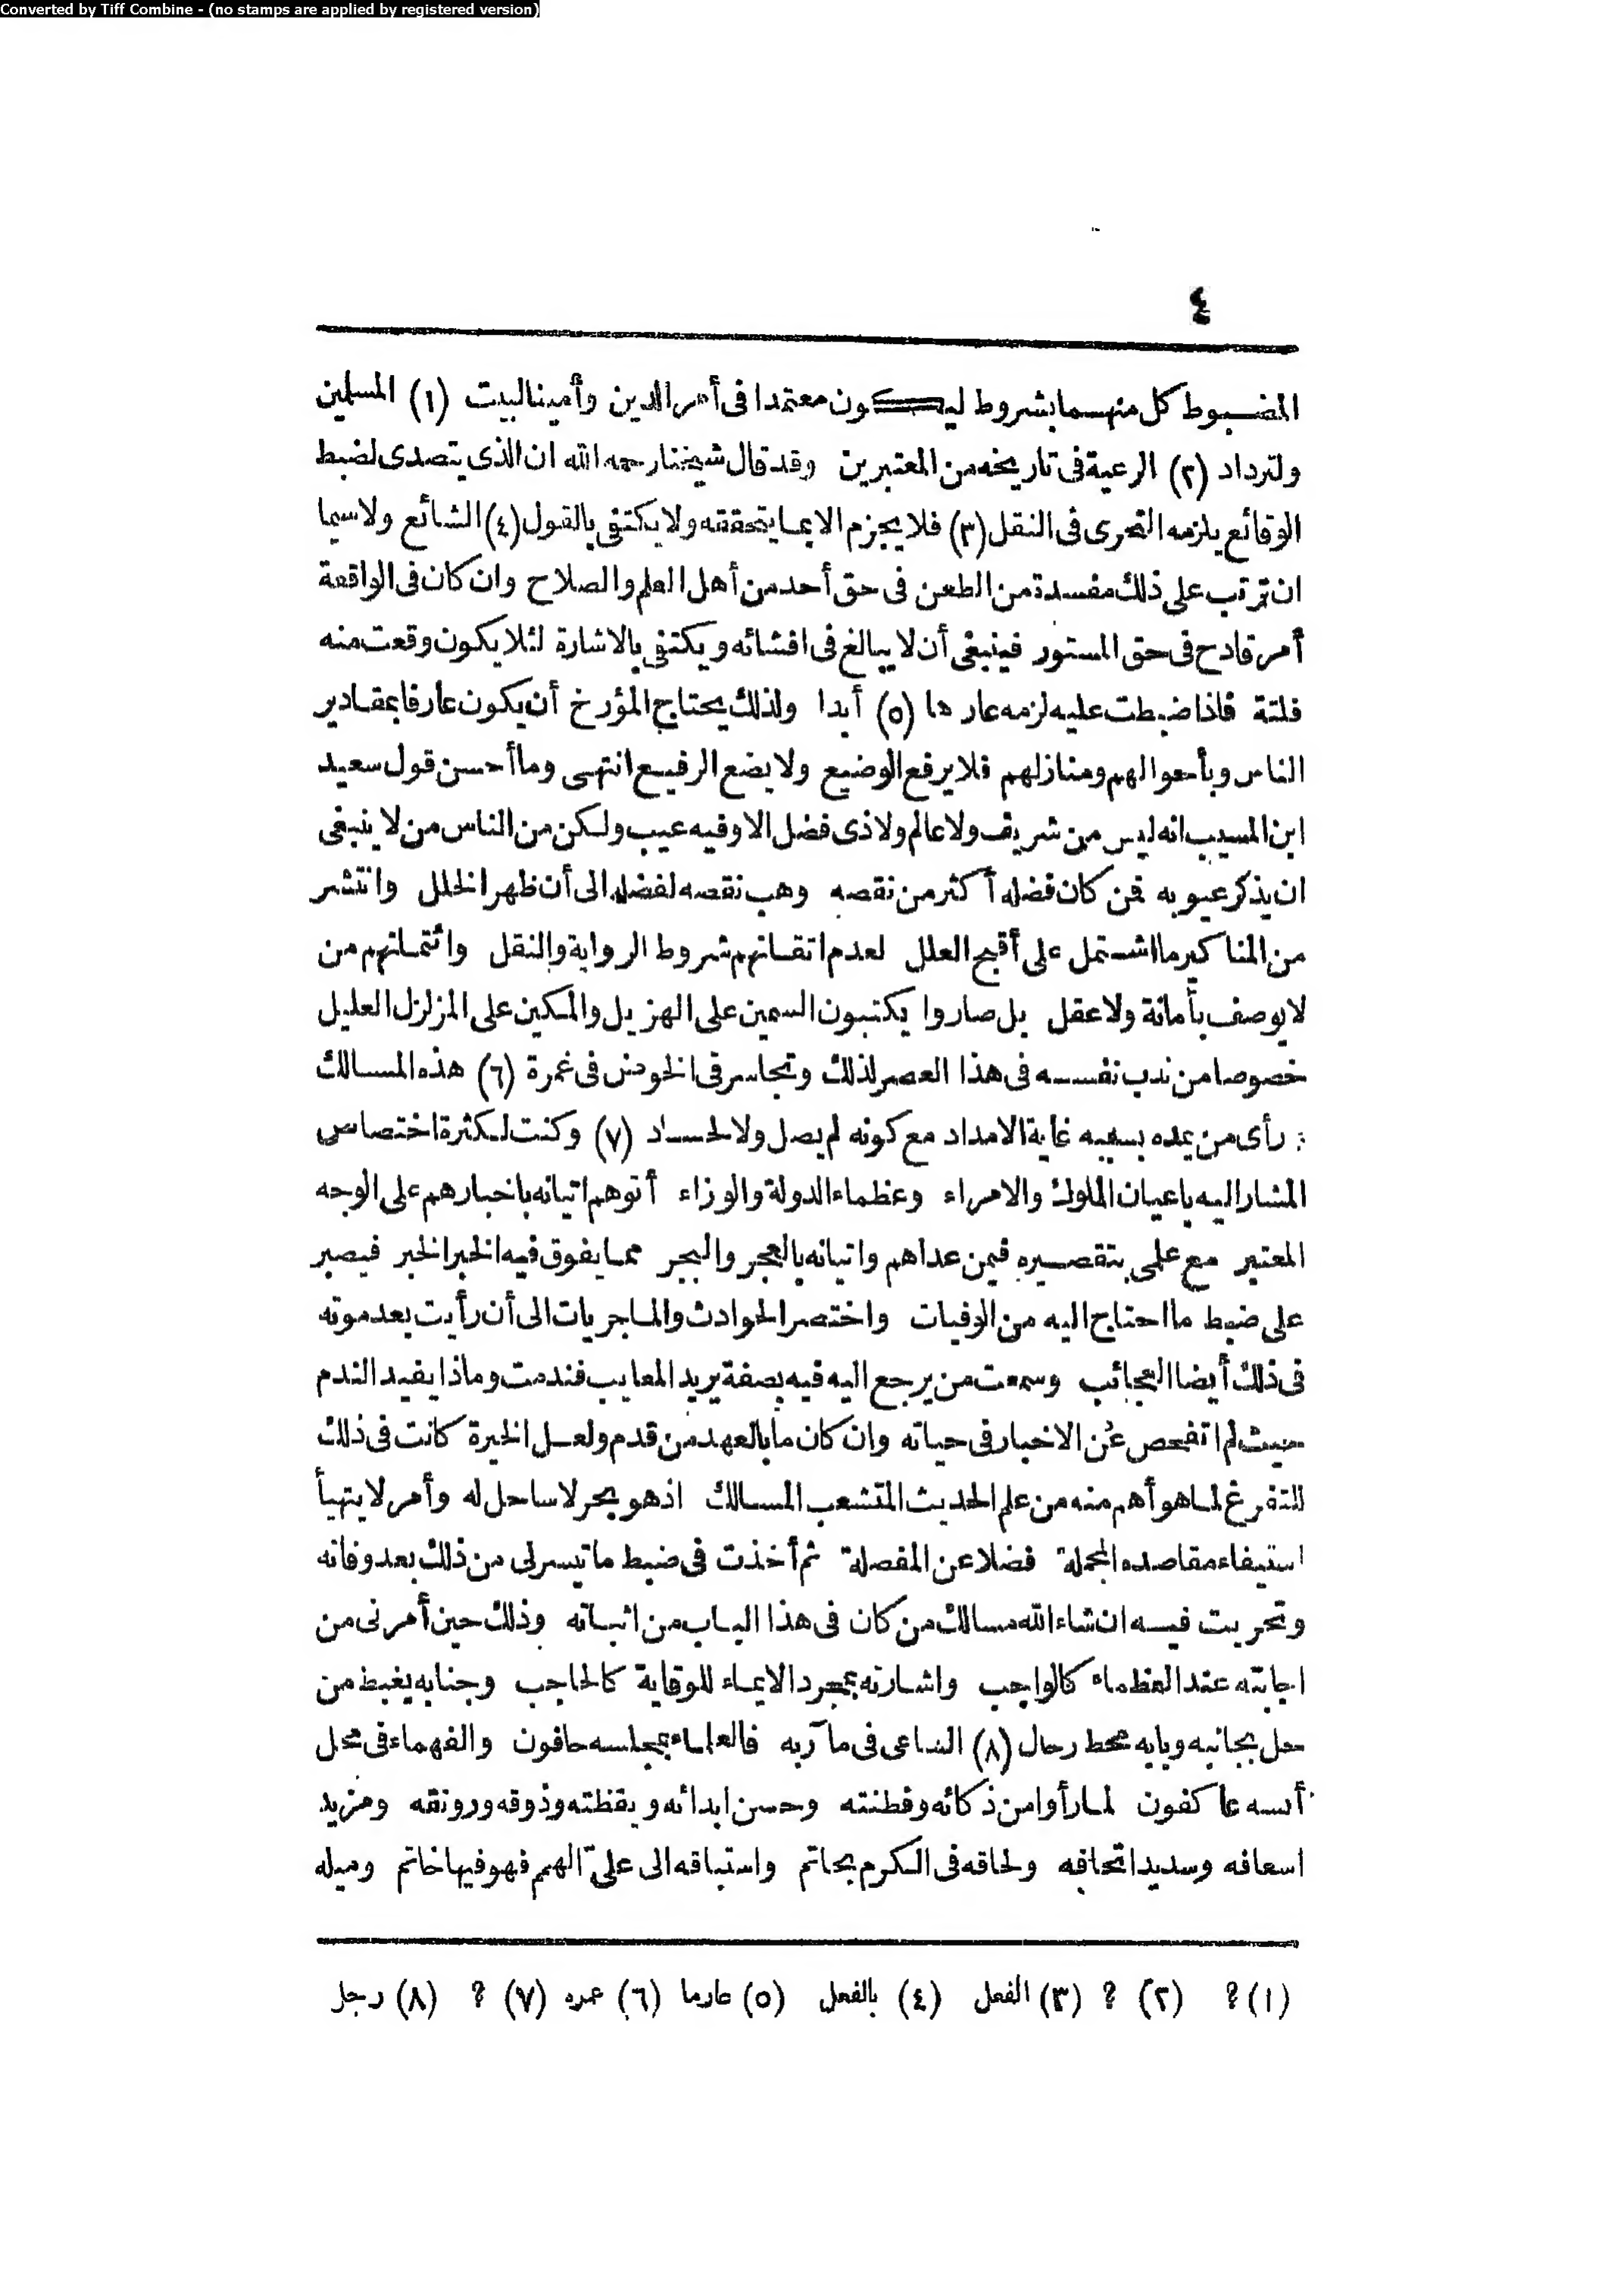 Converted by Tiff Combine - (no stamps are applied by registered version)
٤
المضبوط كل منهما بشروط ليكون معتمدا فى أمر الدين وأمينا لبيت (١) المسلمين
ولترداد (٢) الرعية فى تاريخه من المعتبرين وقد قال شيخنا رحمه الله ان الذى يتصدى لضبط
الوقائع يلزمه التحرى فى النقل (٣) فلا يجزم الا بما يتحققه ولا يكتفى بالقول (٤) الشائع ولاسيما
ان ترتب على ذلك مفسدة من الطعن فى حق أحد من أهل العلم والصلاح وان كان فى الواقعة
أمر قادح فى حق المستور فينبغى أن لا يبالغ فى افشائه ويكتفى بالاشارة لئلا يكون وقعت منه
فلتة فاذا ضبطت عليه لزمه عارها (٥) أبدا ولذلك يحتاج المؤرخ أن يكون عارفا بمقادير
الناس وبأحوالهم ومنازلهم فلا يرفع الوضيع ولا يضع الرفيع انتهى وما أحسن قول سعيد
ابن المسيب انه ليس من شريف ولا عالم ولا ذى فضل الا وفيه عيب ولكن من الناس من لا ينبغى
ان يذكر عيوبه فمن كان فضله أكثر من نقصه وهب نقصه لفضله الى أن ظهر الخلل وانتشر
من المناكير ما اشتمل على أقبح العلل لعدم اتقانهم شروط الرواية والنقل وائتمانهم من
لا يوصف بأمانة ولا عقل بل صاروا يكتبون السمين على الهزيل والمكين على المزلزل العليل
خصوصا من ندب نفسه فى هذا العصر لذلك وتجاسر فى الخوض فى غمرة (٦) هذه المسالك
رأى من يمده بسيبه غاية الامداد مع كونه لم يصل ولا لحساد (٧) وكنت لكثرة اختصاص
المشار اليه باعيان الملوك والامراء وعظماء الدولة والوزراء أتوهم اتيانه باخبارهم على الوجه
المعتبر مع علمى بتقصيره فيمن عداهم واتيانه بالعجر والبجر مما يفوق فيه الخبر الخبر فيصبر
على ضبط ما احتاج اليه من الوفيات واختصر الحوادث والماجريات الى أن رأيت بعد موته
فى ذلك أيضا العجائب وسمعت من يرجع اليه فيه بصفة يريد المعايب فندمت وماذا يفيد الندم
حيث لم اتفحص عن الاخبار فى حياته وان كان ما بالعهد من قدم ولعل الخيرة كانت فى ذلك
للتفرغ لما هو أهم منه من علم الحديث المتشعب المسالك اذ هو بحر لا ساحل له وأمر لا يتهيأ
استيفاء مقاصده المجملة فضلا عن المفصلة ثم أخذت فى ضبط ما تيسر لى من ذلك بعد وفاته
وتحريت فيه ان شاء الله مسالك من كان فى هذا الباب من اثباته وذلك حين أمرنى من
اجابته عند العظماء كالواجب واشارته بمجرد الايماء للوقاية كالحاجب وجنابه يغبط من
حل بجانبه وبابه محط رحال (٨) الساعى فى مآربه فالعلماء بمجلسه حافون والفهماء فى محل
أنسه عاكفون لما رأوا من ذكائه وفطنته وحسن ابدائه ويقظته وذوقه ورونقه ومزيد
اسعافه وسديد اتحافه ولحاقه فى الكرم بحاتم واستباقه الى علىّ الهمم فهو فيها خاتم وميله
(١) ؟ (٢) ؟ (٣) الفعل (٤) بالفعل (٥) عارما (٦) عمره (٧) ؟ (٨) رجل